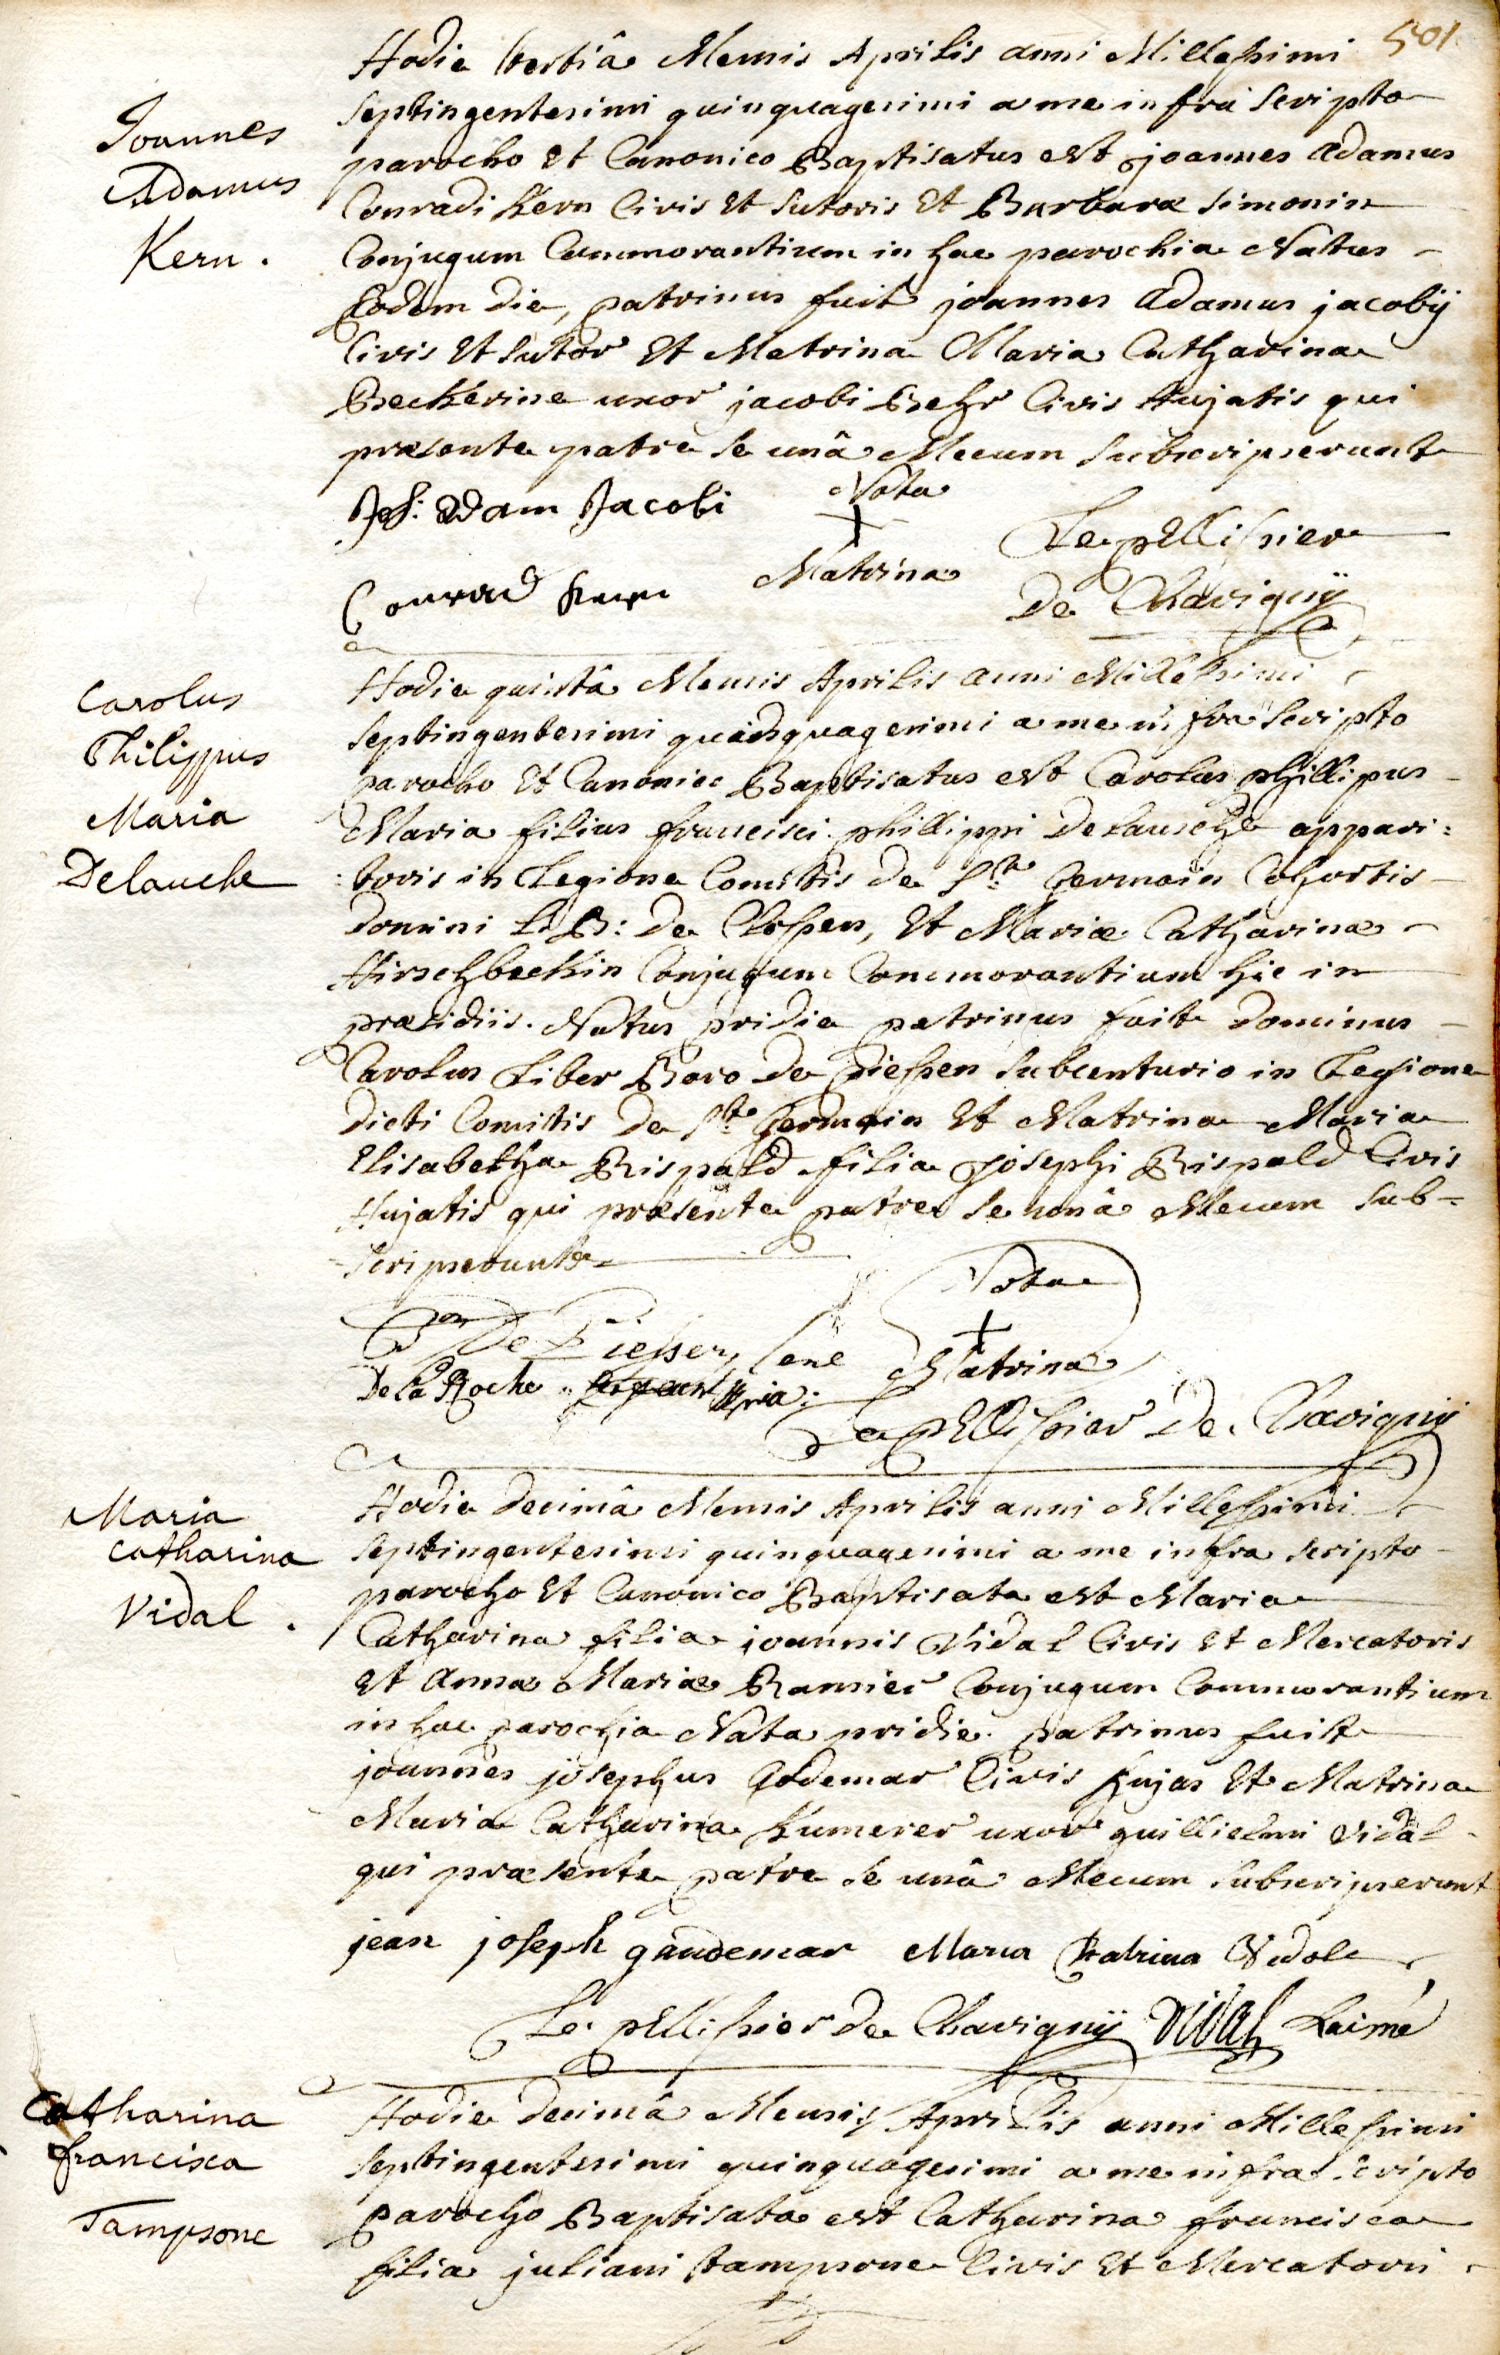 501
Joannes
Adamus
Kern.
Hodie tertiâ Mensis Aprilis anni Millessimi
septingentesimi quinquagesimi a me infra scripto
parocho et Canonico Baptisatus est joannes adamus
Conradi Kern Civis et sutoris et Barbaræ simonin
Conjugum Commorantium in hac parochia Natus
Eodem die, patrinus fuit joannes adamus jacobÿ
Civis et sutor et Matrina Maria Catharina
Beckerine uxor jacobi Behr Civis hujatis qui
præsente patre se unâ Mecum subscripserunt
Joh: Adam Jacobi
Nota
+
Matrina
Conrad Kern
Le pellissier
De Chavignÿ
Carolus
Philippus
Maria
Delauche
Hodie quintâ Mensis Aprilis anni Millessimi
septingentesimi quinquagesimi a me infra scripto
parocho et Canonico Baptisatus est Carolus phillipus
Maria filius francisci phillippi Delausche appari:
:toris in Legione Comitis de St. Germain Cohortis
domini L: B: de Closen, et Mariæ Catharinæ
Hirschbeckin Conjugum Commorantium hic in
præsidiis. Natus pridie patrinus fuit dominus
Carolus Liber Baro de Piessen subcenturio in Legione
dicti Comitis de St. Germain et Matrina Maria
Elisabetha Rispald filia josephi Rispald Civis
hujatis qui præsente patre se unâ Mecum sub=
scripserunt
Bon De Piessen
De La Roche
Nota
+
Matrina
Le pellissier de Chavignÿ
Maria
catharina
Vidal.
Hodie decimâ Mensis Aprilis anni Millessimi
septingentesimi quinquagesimi a me infra scripto
parocho et Canonico Baptisata est Maria
Catharina filia joannis Vidal Civis et Mercatoris
et annæ Mariæ Ramier Conjugum Commorantium
in hac parochia Nata pridie. patrinus fuit
joannes josephus Godemar Civis hujas et Matrina
Maria Catharina Kumerer uxor guillielmi vidal
qui præsente patre se unâ Mecum subscripserunt
jean joseph gaudemar Maria Katrina Vidole
Le pellissier de Chavignÿ Vidal Laimé
Catharina
francisca
Tampsone
Hodie decimâ Mensis Aprilis anni Millessimi
septingentesimi quinquagesimi a me infra scripto
parocho Baptisata est Catharina francisca
filia juliani tampsone Civis et Mercatoris